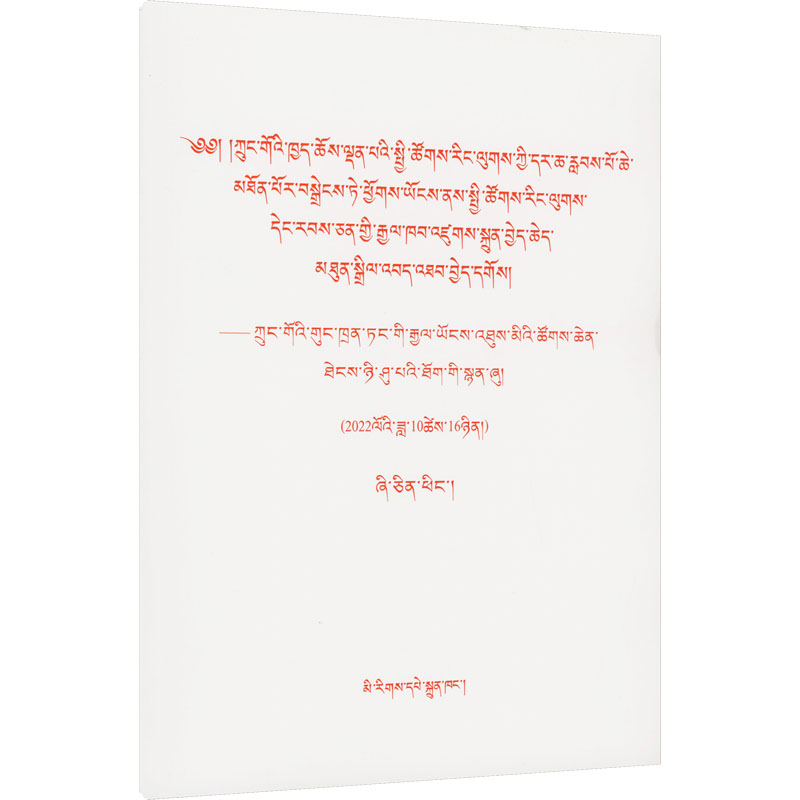 ༄༅། །ཀྲུང་གོའི་ཁྱད་ཆོས་ལྡན་པའི་སྤྱི་ཚོགས་རིང་ལུགས་ཀྱི་དར་ཆ་རླབས་པོ་ཆེ་
མཐོན་པོར་བསྒྲེངས་ཏེ་ཕྱོགས་ཡོངས་ནས་སྤྱི་ཚོགས་རིང་ལུགས་
དེང་རབས་ཅན་གྱི་རྒྱལ་ཁབ་འཛུགས་སྐྲུན་བྱེད་ཆེད་
མཐུན་སྒྲིལ་འབད་འཐབ་བྱེད་དགོས།
—— ཀྲུང་གོའི་གུང་ཁྲན་ཏང་གི་རྒྱལ་ཡོངས་འཐུས་མིའི་ཚོགས་ཆེན་
ཐེངས་ཉི་ཤུ་པའི་ཐོག་གི་སྙན་ཞུ།
(2022ལོའི་ཟླ་10ཚེས་16ཉིན།)
ཞི་ཅིན་ཕིང་།
མི་རིགས་དཔེ་སྐྲུན་ཁང་།